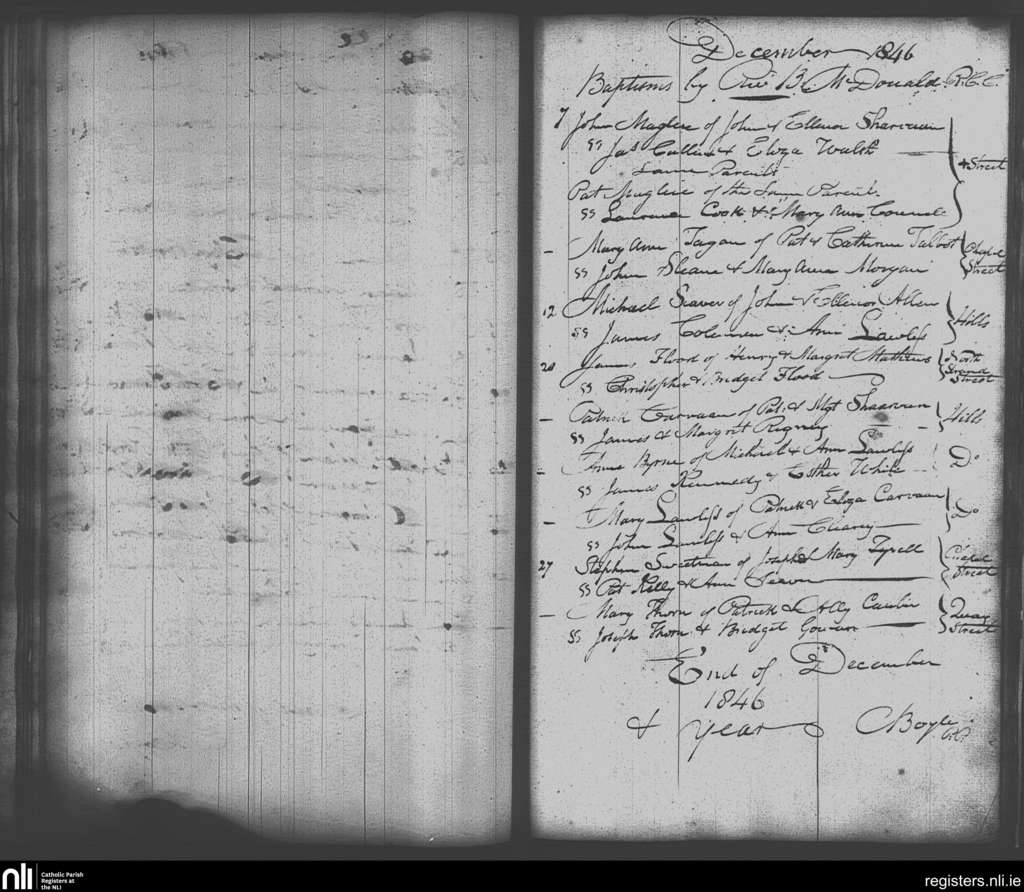 December 1846
Baptisms by Revd B. McDonald R.C.C.
7 John Maglue of John & Ellenor Sharvan
ss Jas Cullen & Eliza Walsh
Same Parents
} Street
Pat Maglue of the Same Parents
ss Laurence Cook & Mary Ann
- Mary Anne Fagan of Pat & Catherine Talbot
ss John Sleane & Mary Anne Morgan
} Chapel Street
12 Michael Seaver of John & Ellenor Allen
ss James Coleman & Ann Lawless
} Hills
20 James Flood of Henry & Margret Mathews
ss Christopher & Bridget Flood
} North Strand Street
- Patrick Carvaan of Pat & Mgt Shaarvan
ss James & Margret Rigney
} Hills
- Anne Byrne of Michael & Ann Lawless
ss James Kennedy & Esther White
Do
- Mary Lawless of Patrick & Eliza Carvaan
ss John Lawless & Ann Cleary
} Do
27 Stephen Sweetman of Joseph & Mary Tyrell
ss Pat Kelly & Ann Seaver
} Chapel Street
- Mary Thorn of Patrick & Ally
ss Joseph Thorn & Bridget
} Quay Street
End of December
1846
& year
C Boyle
nli
Catholic Parish
Registers at
the NLI
registers.nli.ie